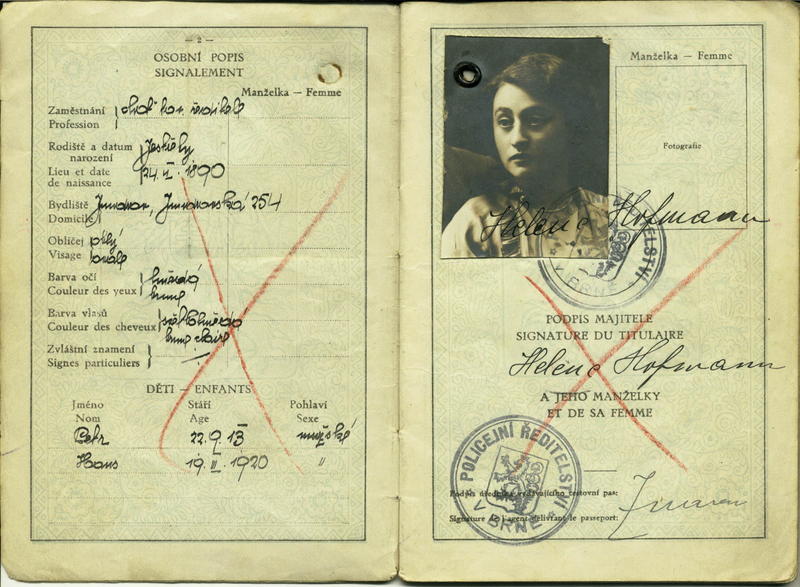 — 2 —
OSOBNÍ POPIS
SIGNALEMENT
Manželka — Femme
Zaměstnání
Profession
Rodiště a datum
narození
Lieu et date
de naissance
24. 1890
Bydliště
Domicile
254
Obličej
Visage
plný
ovale
Barva očí
Couleur des yeux
hnědá
brune
Barva vlasů
Couleur des cheveux
světlohnědá
brune claire
Zvláštní znamení
Signes particuliers
DĚTI — ENFANTS
Jméno Stáří Pohlaví
Nom Age Sexe
Petr 22.9.13 mužské
Hans 19. II. 1920 "
Manželka — Femme
Fotografie
Helene Hofmann
POLICEJNÍ ŘEDITELSTVÍ
V BRNĚ
PODPIS MAJITELE
SIGNATURE DU TITULAIRE
Helene Hofmann
A JEHO MANŽELKY
ET DE SA FEMME
POLICEJNÍ ŘEDITELSTVÍ
V BRNĚ
Podpis úředníka vydávajícího cestovní pas:
Signature de l'agent délivrant le passeport: